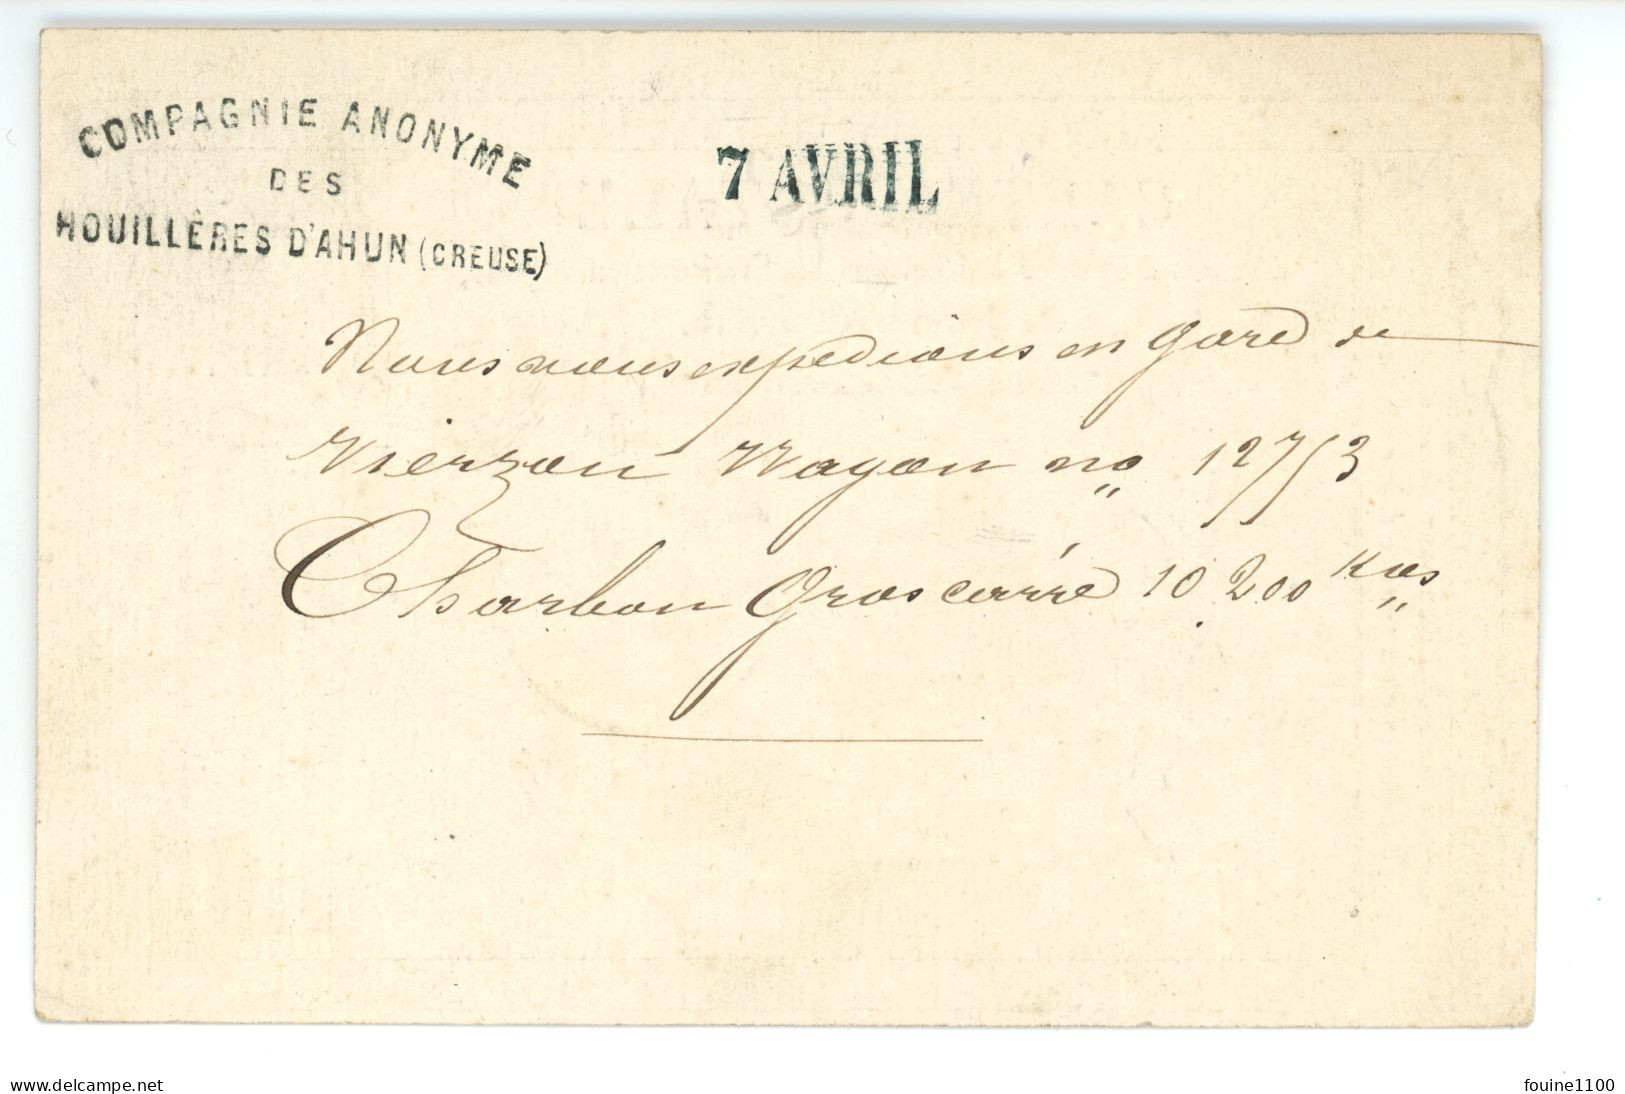 COMPAGNIE ANONYME
DES
HOUILLÈRES D'AHUN (CREUSE)
7 AVRIL
Nous vous expedions en gare de
Vierzon Wagon no 12753
Charbon Gros carré 10.200 Kos
delcampe.net
fouine1100